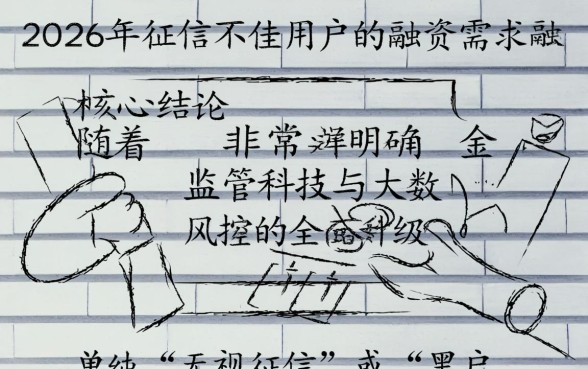 2026年征信不佳用户的融资需求融
核心结论
随着 非常 明确 金
监管科技与大数
风控的全面升级
单纯“无视征信”或“黑户